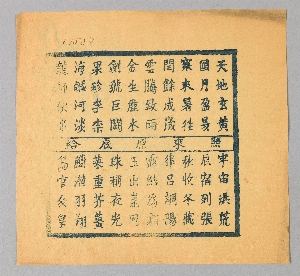 天地玄黃宇宙洪荒
日月盈昃辰宿列張
寒來暑往秋收冬藏
閏餘成歲律呂調陽
雲騰致雨露結爲霜
金生麗水玉出崑岡
劍號巨闕珠稱夜光
果珍李柰菜重芥薑
海鹹河淡鱗潛羽翔
龍師火帝鳥官人皇